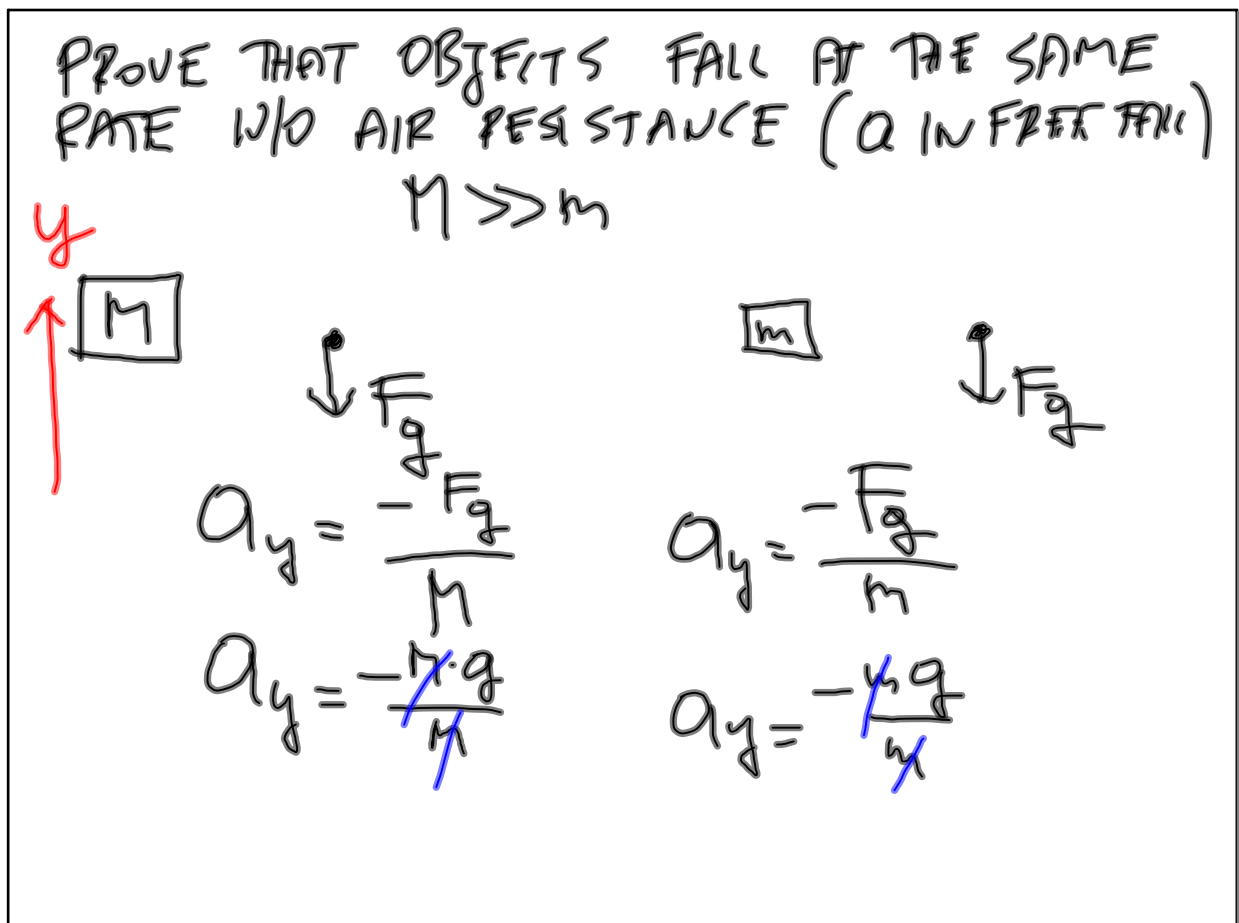 PROVE THAT OBJECTS FALL AT THE SAME
RATE W/O AIR RESISTANCE (a IN FREE FALL)
M >> m
y
M
F_g
m
F_g
a_y = -F_g / M
a_y = -F_g / m
a_y = -M·g / M
a_y = -mg / m